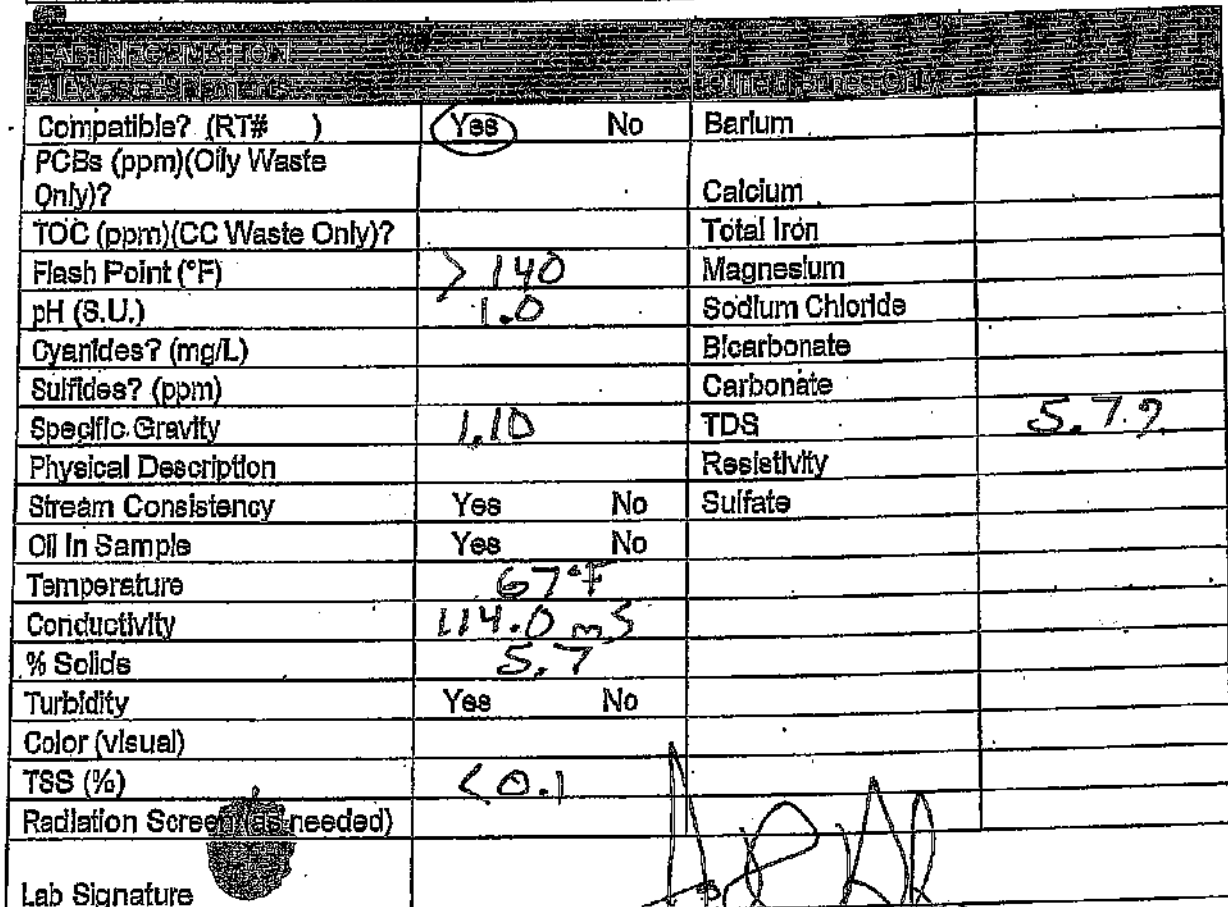 LAB INFORMATION
All Waste Shipments
Oilfield Brines Only
Compatible? (RT# ) Yes No Barium
PCBs (ppm)(Oily Waste
Only)? Calcium
TOC (ppm)(CC Waste Only)? Total Iron
Flash Point (°F) > 140 Magnesium
pH (S.U.) 1.0 Sodium Chloride
Cyanides? (mg/L) Bicarbonate
Sulfides? (ppm) Carbonate
Specific Gravity 1.10 TDS 5.7
Physical Description Resistivity
Stream Consistency Yes No Sulfate
Oil In Sample Yes No
Temperature 67°F
Conductivity 114.0 mS
% Solids 5.7
Turbidity Yes No
Color (visual)
TSS (%) < 0.1
Radiation Screen (as needed)
Lab Signature